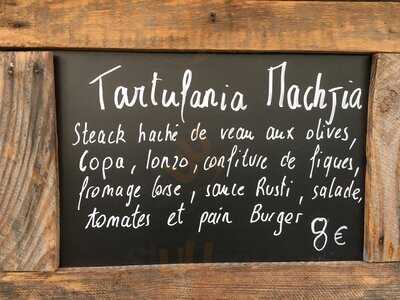 Tartufania Machjia
Steack haché de veau aux olives,
Copa, lonzo, confiture de figues,
fromage corse, sauce Rusti, salade,
tomates et pain Burger
8€